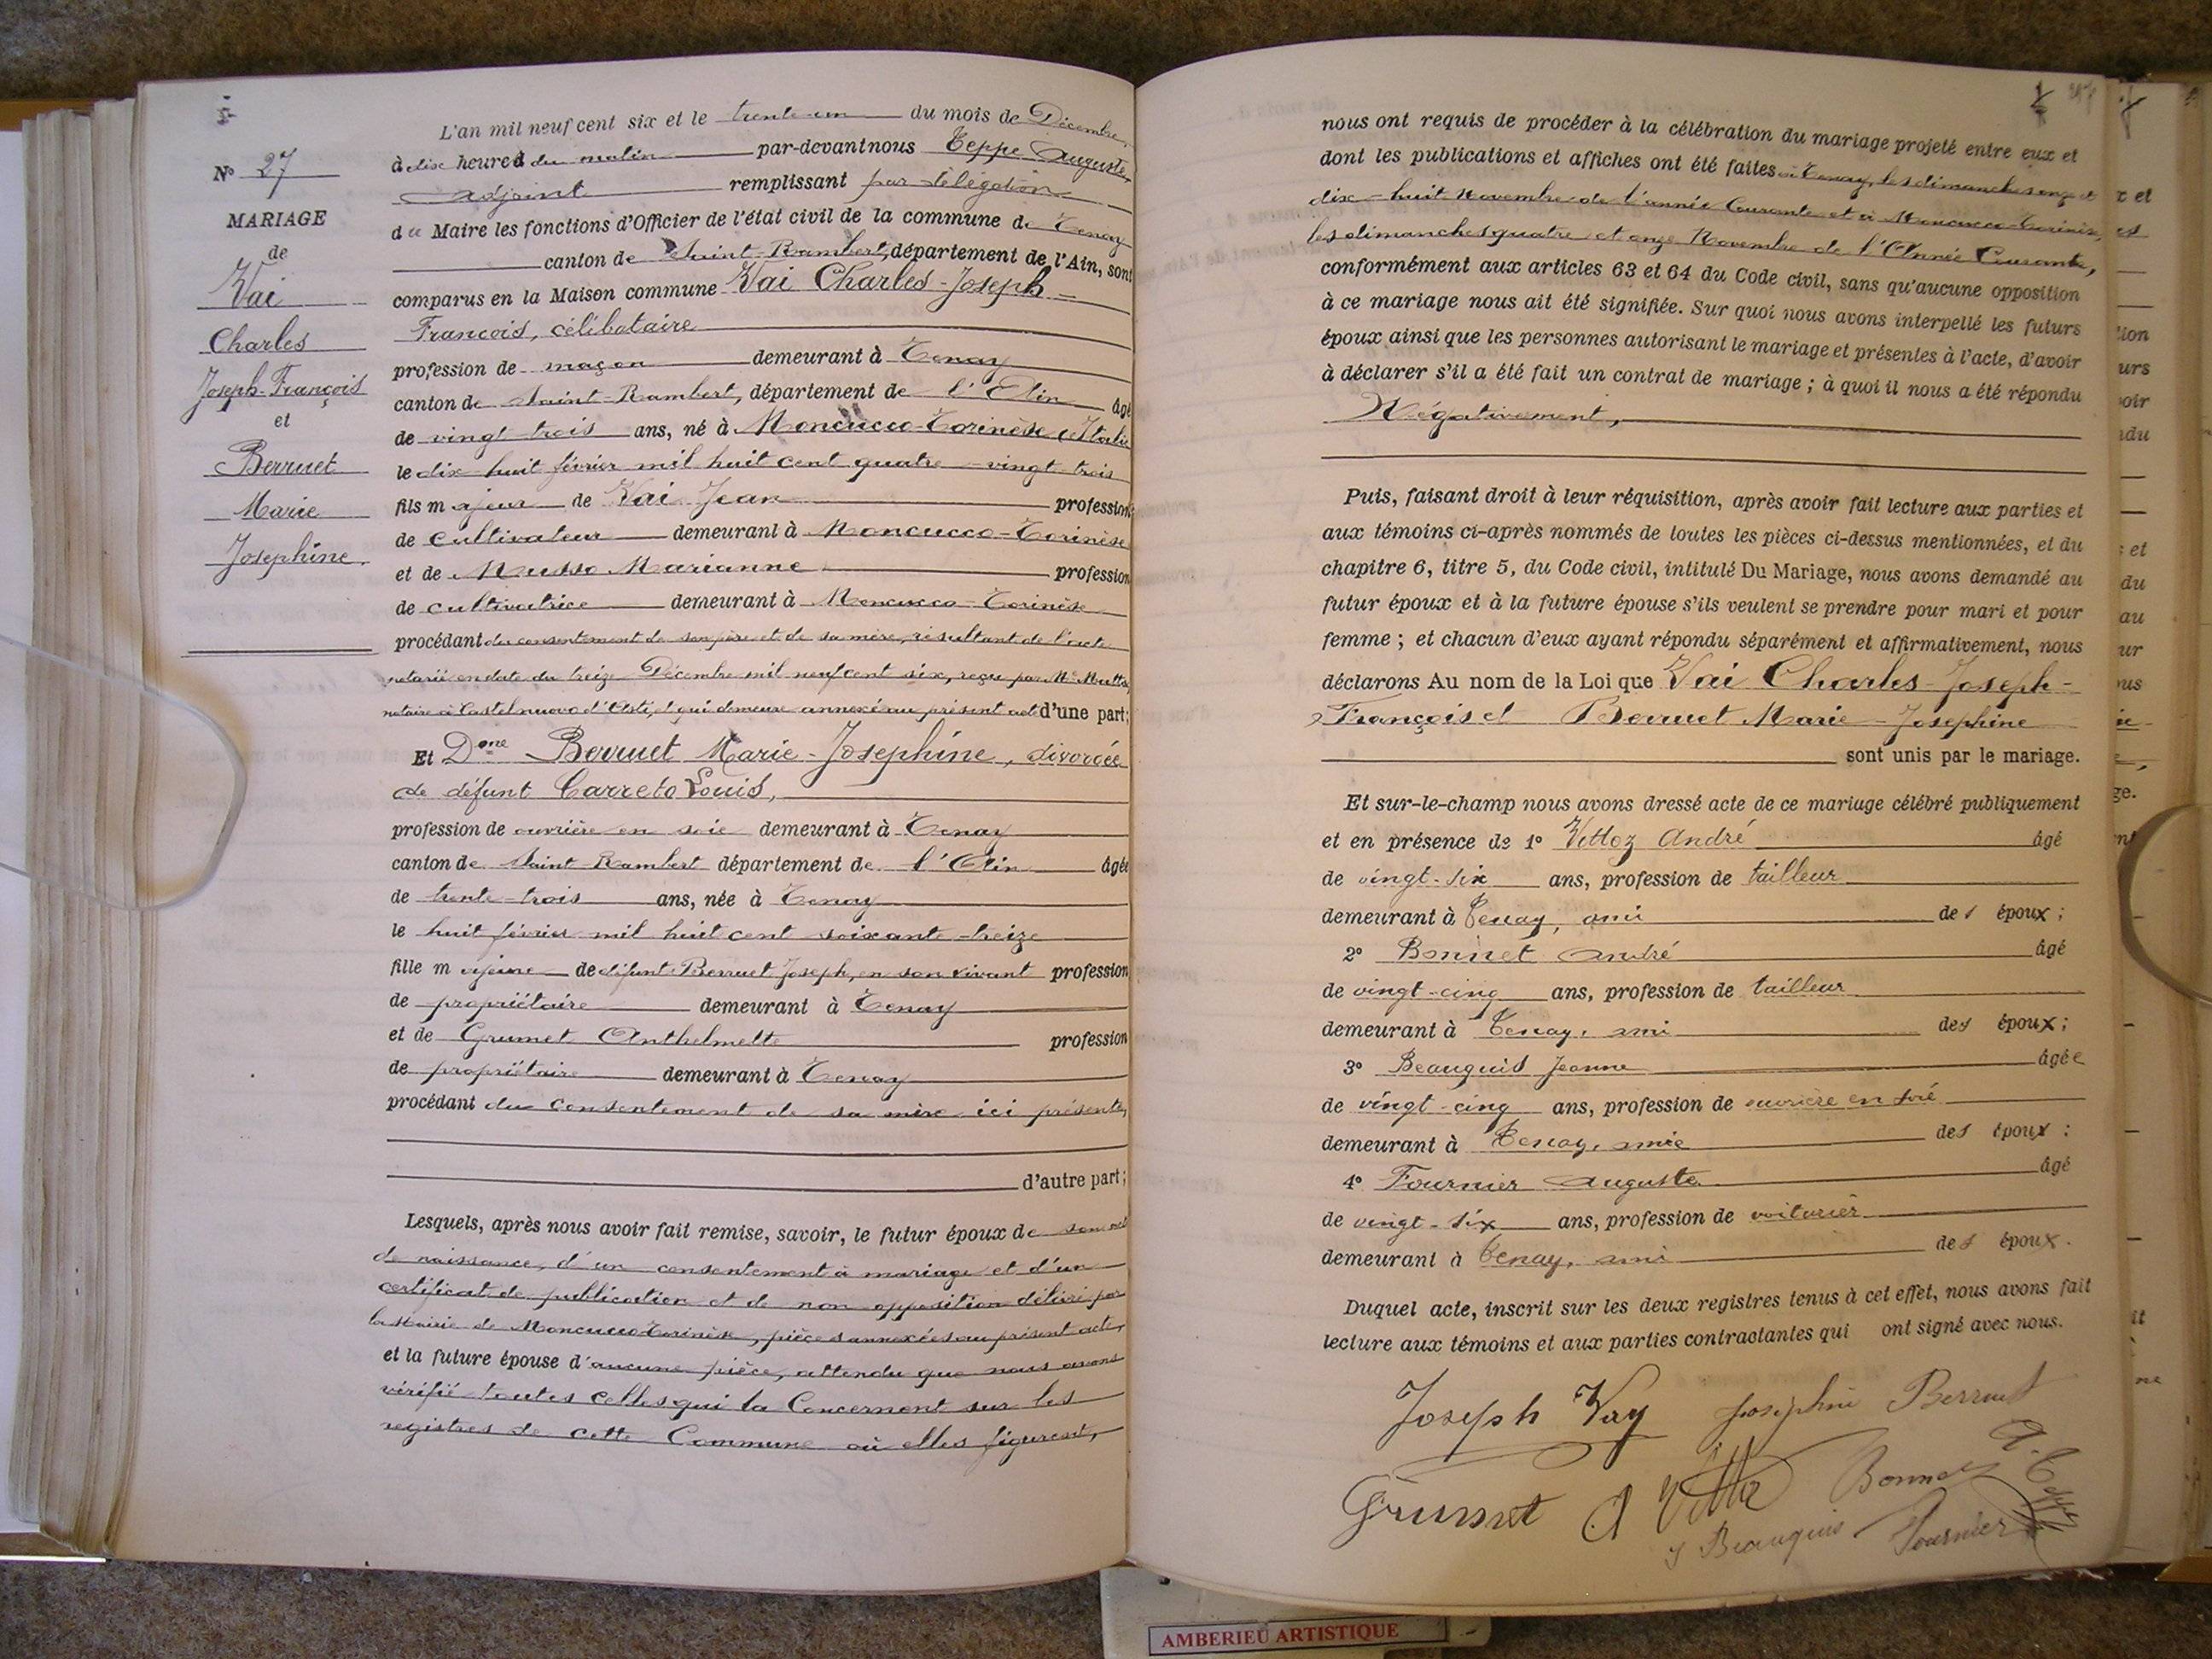 N° 27
MARIAGE
de
Vai
Charles
Joseph-François
et
Berruet
Marie
Josephine.
L'an mil neuf cent six et le trente-un du mois de Décembre,
à dix heures du matin par-devant nous Teppe Auguste,
adjoint remplissant par délégation
du Maire les fonctions d'Officier de l'état civil de la commune de Tenay
canton de Saint-Rambert, département de l'Ain, sont
comparus en la Maison commune Vai Charles-Joseph-
François, célibataire
profession de maçon demeurant à Tenay
canton de Saint-Rambert, département de l'Ain âgé
de vingt trois ans, né à Moncucco-Torinèse (Italie
le dix huit février mil huit cent quatre-vingt-trois
fils majeur de Vai Jean profession
de cultivateur demeurant à Moncucco-Torinèse
et de Musso Marianne profession
de cultivatrice demeurant à Moncucco-Torinèse
procédant du consentement de son père et de sa mère, résultant de l'acte
notarié en date du treize Décembre mil neuf cent six, reçu par Me
notaire à Castelnuovo d'Asti, et qui demeure annexé au présent acte d'une part;
Et Dme Berruet Marie-Josephine, divorcée
de défunt Carreto Louis,
profession de ouvrière en soie demeurant à Tenay
canton de Saint-Rambert département de l'Ain âgée
de trente-trois ans, née à Tenay
le huit février mil huit cent soixante-treize
fille majeure de défunt Berruet Joseph, en son vivant profession
de propriétaire demeurant à Tenay
et de Grumet Anthelmette profession
de propriétaire demeurant à Tenay
procédant du consentement de sa mère ici présente,
d'autre part;
Lesquels, après nous avoir fait remise, savoir, le futur époux de son acte
de naissance, d'un consentement à mariage et d'un
certificat de publication et de non opposition délivré par
la Mairie de Moncucco-Torinèse, pièces annexées au présent acte,
et la future épouse d'aucune pièce, attendu que nous avons
vérifié toutes celles qui la Concernent sur les
registres de cette Commune où elles figurent,
nous ont requis de procéder à la célébration du mariage projeté entre eux et
dont les publications et affiches ont été faites à Tenay, les dimanches onze et
dix-huit Novembre de l'année Courante et à Moncucco-Torinèse,
les dimanches quatre et onze Novembre de l'Année Courante,
conformément aux articles 63 et 64 du Code civil, sans qu'aucune opposition
à ce mariage nous ait été signifiée. Sur quoi nous avons interpellé les futurs
époux ainsi que les personnes autorisant le mariage et présentes à l'acte, d'avoir
à déclarer s'il a été fait un contrat de mariage; à quoi il nous a été répondu
Négativement,
Puis, faisant droit à leur réquisition, après avoir fait lecture aux parties et
aux témoins ci-après nommés de toutes les pièces ci-dessus mentionnées, et du
chapitre 6, titre 5, du Code civil, intitulé Du Mariage, nous avons demandé au
futur époux et à la future épouse s'ils veulent se prendre pour mari et pour
femme; et chacun d'eux ayant répondu séparément et affirmativement, nous
déclarons Au nom de la Loi que Vai Charles-Joseph-
François et Berruet Marie-Josephine
sont unis par le mariage.
Et sur-le-champ nous avons dressé acte de ce mariage célébré publiquement
et en présence de 1° Vettoz André âgé
de vingt-six ans, profession de tailleur
demeurant à Tenay, ami des époux;
2° Bonnet André âgé
de vingt-cinq ans, profession de tailleur
demeurant à Tenay, ami des époux;
3° Beauquis Jeanne âgée
de vingt-cinq ans, profession de ouvrière en soie
demeurant à Tenay, amie des époux;
4° Fournier Auguste âgé
de vingt-six ans, profession de voiturier
demeurant à Tenay, ami des époux.
Duquel acte, inscrit sur les deux registres tenus à cet effet, nous avons fait
lecture aux témoins et aux parties contractantes qui ont signé avec nous.
Joseph Vay Josephine Berruet
Grumet A Vettoz Bonnet A. Teppe
J Beauquis Fournier
AMBERIEU ARTISTIQUE